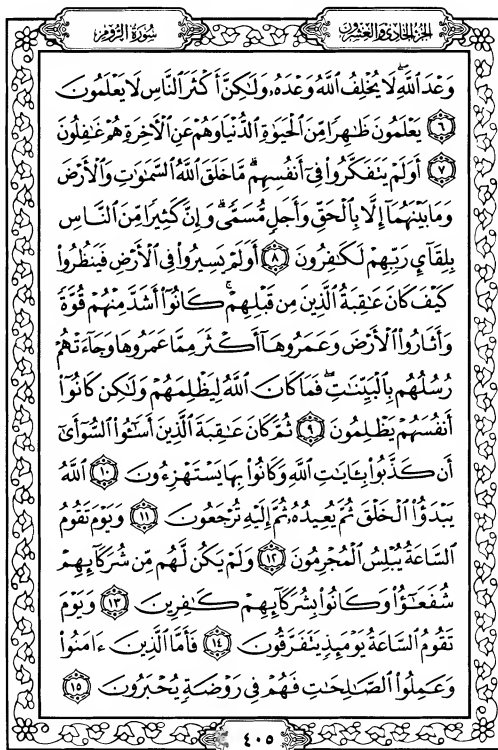 الجزء الحادي والعشرون
سورة الروم
وَعْدَ ٱللَّهِ ۖ لَا يُخْلِفُ ٱللَّهُ وَعْدَهُۥ وَلَـٰكِنَّ أَكْثَرَ ٱلنَّاسِ لَا يَعْلَمُونَ
٦ يَعْلَمُونَ ظَـٰهِرًا مِّنَ ٱلْحَيَوٰةِ ٱلدُّنْيَا وَهُمْ عَنِ ٱلْـَٔاخِرَةِ هُمْ غَـٰفِلُونَ
٧ أَوَلَمْ يَتَفَكَّرُوا۟ فِىٓ أَنفُسِهِم ۗ مَّا خَلَقَ ٱللَّهُ ٱلسَّمَـٰوَٰتِ وَٱلْأَرْضَ
وَمَا بَيْنَهُمَآ إِلَّا بِٱلْحَقِّ وَأَجَلٍ مُّسَمًّى ۗ وَإِنَّ كَثِيرًا مِّنَ ٱلنَّاسِ
بِلِقَآئِ رَبِّهِمْ لَكَـٰفِرُونَ ٨ أَوَلَمْ يَسِيرُوا۟ فِى ٱلْأَرْضِ فَيَنظُرُوا۟
كَيْفَ كَانَ عَـٰقِبَةُ ٱلَّذِينَ مِن قَبْلِهِمْ ۚ كَانُوٓا۟ أَشَدَّ مِنْهُمْ قُوَّةً
وَأَثَارُوا۟ ٱلْأَرْضَ وَعَمَرُوهَآ أَكْثَرَ مِمَّا عَمَرُوهَا وَجَآءَتْهُمْ
رُسُلُهُم بِٱلْبَيِّنَـٰتِ ۖ فَمَا كَانَ ٱللَّهُ لِيَظْلِمَهُمْ وَلَـٰكِن كَانُوٓا۟
أَنفُسَهُمْ يَظْلِمُونَ ٩ ثُمَّ كَانَ عَـٰقِبَةَ ٱلَّذِينَ أَسَـٰٓـُٔوا۟ ٱلسُّوٓأَىٰٓ
أَن كَذَّبُوا۟ بِـَٔايَـٰتِ ٱللَّهِ وَكَانُوا۟ بِهَا يَسْتَهْزِءُونَ ١٠ ٱللَّهُ
يَبْدَؤُا۟ ٱلْخَلْقَ ثُمَّ يُعِيدُهُۥ ثُمَّ إِلَيْهِ تُرْجَعُونَ ١١ وَيَوْمَ تَقُومُ
ٱلسَّاعَةُ يُبْلِسُ ٱلْمُجْرِمُونَ ١٢ وَلَمْ يَكُن لَّهُم مِّن شُرَكَآئِهِمْ
شُفَعَـٰٓؤُا۟ وَكَانُوا۟ بِشُرَكَآئِهِمْ كَـٰفِرِينَ ١٣ وَيَوْمَ
تَقُومُ ٱلسَّاعَةُ يَوْمَئِذٍ يَتَفَرَّقُونَ ١٤ فَأَمَّا ٱلَّذِينَ ءَامَنُوا۟
وَعَمِلُوا۟ ٱلصَّـٰلِحَـٰتِ فَهُمْ فِى رَوْضَةٍ يُحْبَرُونَ ١٥
٤٠٥